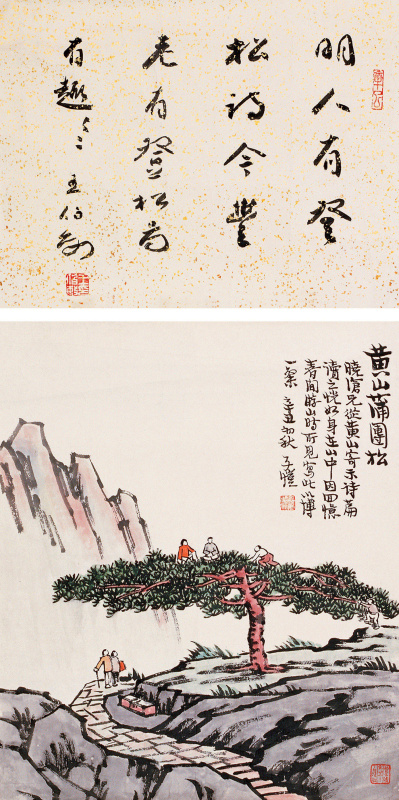 明人有登
松詩今豐
老有登松
有趣々々 王伯敏
黄山蒲團松
曉滄兄從黄山寄示詩篇
讀之恍如身在山中因回憶
春間游山時所見寫此以博
一粲 辛丑初秋 子愷